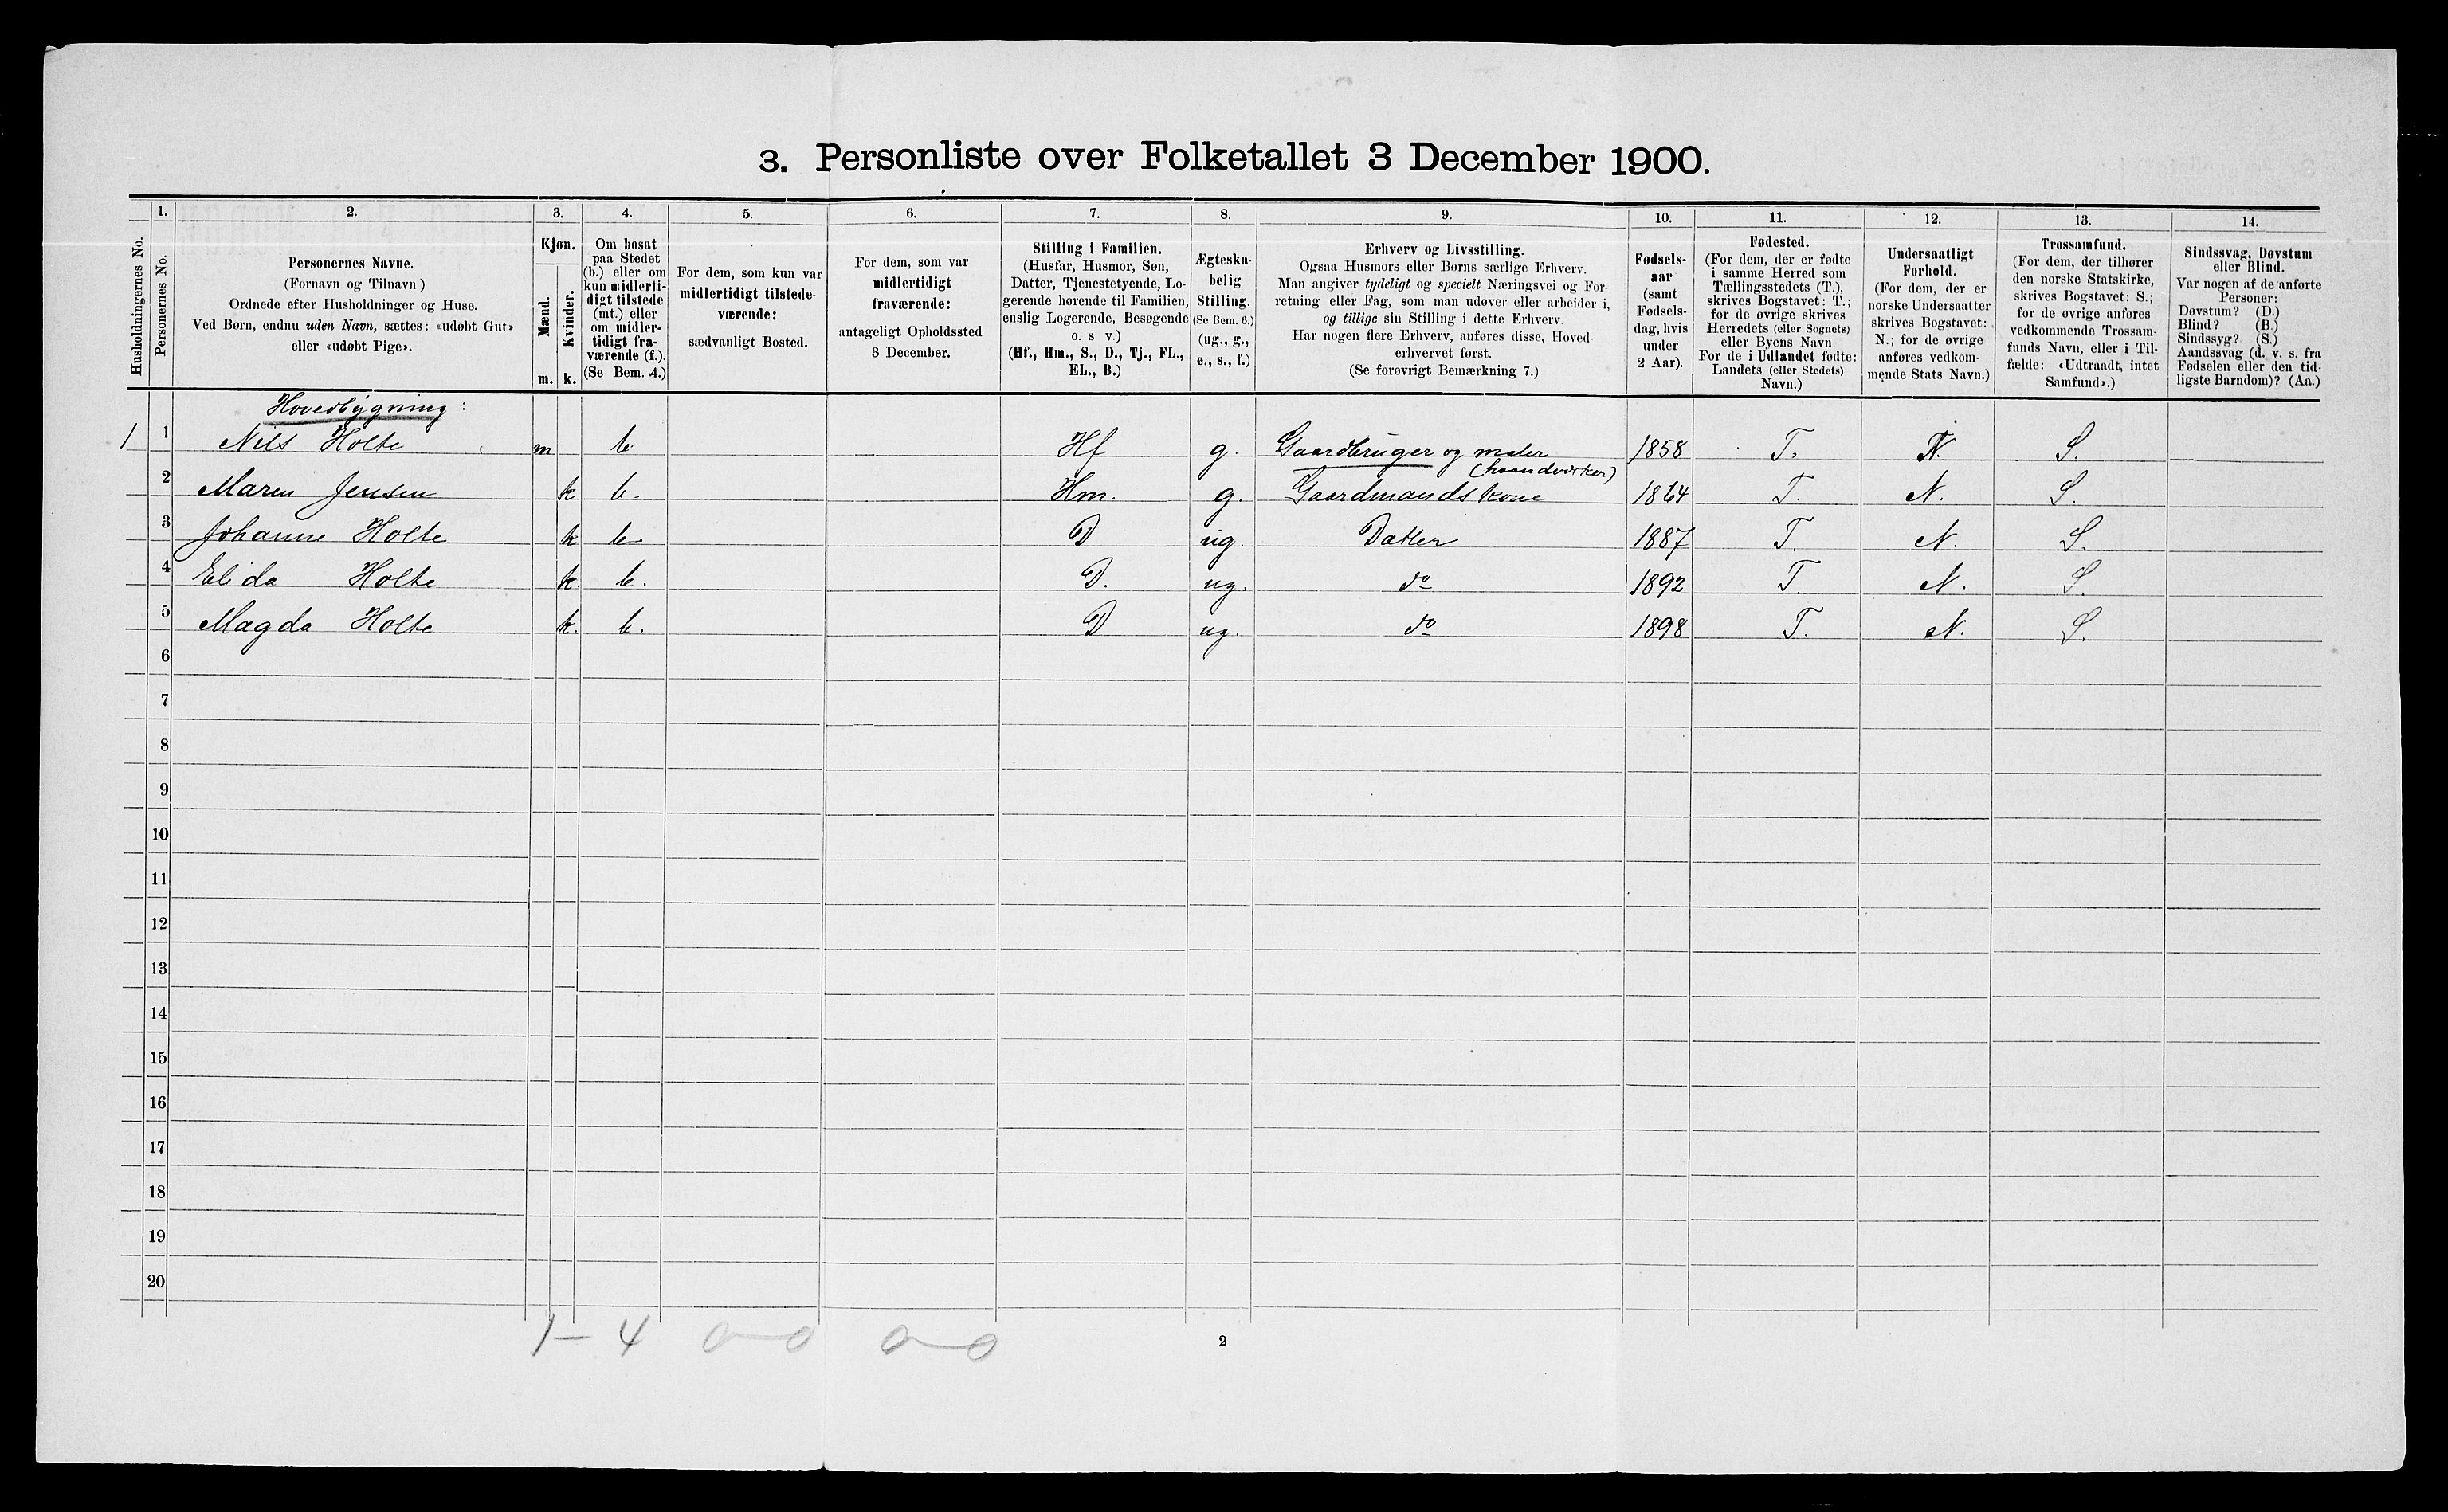 3. Personliste over Folketallet 3 December 1900.
Husholdningernes No.
1.
Personernes No.
2.
Personernes Navne.
(Fornavn og Tilnavn)
Ordnede efter Husholdninger og Huse.
Ved Børn, endnu uden Navn, sættes: «udøbt Gut»
eller «udøbt Pige».
3.
Kjøn.
Mænd.
Kvinder.
m. k.
4.
Om bosat
paa Stedet
(b.) eller om
kun midlerti-
digt tilstede
(mt.) eller
om midler-
tidigt fra-
værende (f.).
(Se Bem. 4.)
5.
For dem, som kun var
midlertidigt tilstede-
værende:
sædvanligt Bosted.
6.
For dem, som var
midlertidigt
fraværende:
antageligt Opholdssted
3 December.
7.
Stilling i Familien.
(Husfar, Husmor, Søn,
Datter, Tjenestetyende, Lo-
gerende hørende til Familien,
enslig Logerende, Besøgende
o. s v.)
(Hf., Hm., S., D., Tj., FL.,
EL., B.)
8.
Ægteska-
belig
Stilling.
(Se Bem. 6.)
(ug., g.,
e., s., f.)
9.
Erhverv og Livsstilling.
Ogsaa Husmors eller Børns særlige Erhverv.
Man angiver tydeligt og specielt Næringsvei og For-
retning eller Fag, som man udover eller arbeider i,
og tillige sin Stilling i dette Erhverv.
Har nogen flere Erhverv, anføres disse, Hoved-
erhvervet først.
(Se forøvrigt Bemærkning 7.)
10.
Fødsels-
aar
(samt
Fødsels-
dag, hvis
under
2 Aar).
11.
Fødested.
(For dem, der er fødte
i samme Herred som
Tællingsstedets (T.),
skrives Bogstavet: T.;
for de øvrige skrives
Herredets (eller Sognets)
eller Byens Navn
For de i Udlandet fødte:
Landets (eller Stedets)
Navn.)
12.
Undersaatligt
Forhold.
(For dem, der er
norske Undersaatter
skrives Bogstavet:
N.; for de øvrige
anføres vedkom-
mende Stats Navn.)
13.
Trossamfund.
(For dem, der tilhører
den norske Statskirke,
skrives Bogstavet: S.;
for de øvrige anføres
vedkommende Trossam-
funds Navn, eller i Til-
fælde: «Udtraadt, intet
Samfund».)
14.
Sindssvag, Døvstum
eller Blind.
Var nogen af de anførte
Personer:
Døvstum? (D.)
Blind? (B.)
Sindssyg? (S.)
Aandssvag (d. v. s. fra
Fødselen eller den tid-
ligste Barndom)? (Aa.)
Hovedbygning:
1 1 Nils Holte m b. Hf g. Gaardbruger og maler (haandverker) 1858 T. N. S.
2 Maren Jensen k b. Hm. g. Gaardmandskone 1864 T. N. S.
3 Johanne Holte k b. D ug. Datter 1887 T. N. S.
4 Elida Holte k. b. D. ug. do 1892 T. N. S.
5 Magda Holte k. b. D ug. do 1898 T. N. S.
6
7
8
9
10
11
12
13
14
15
16
17
18
19
20
1 - 4 0-0 0-0
2